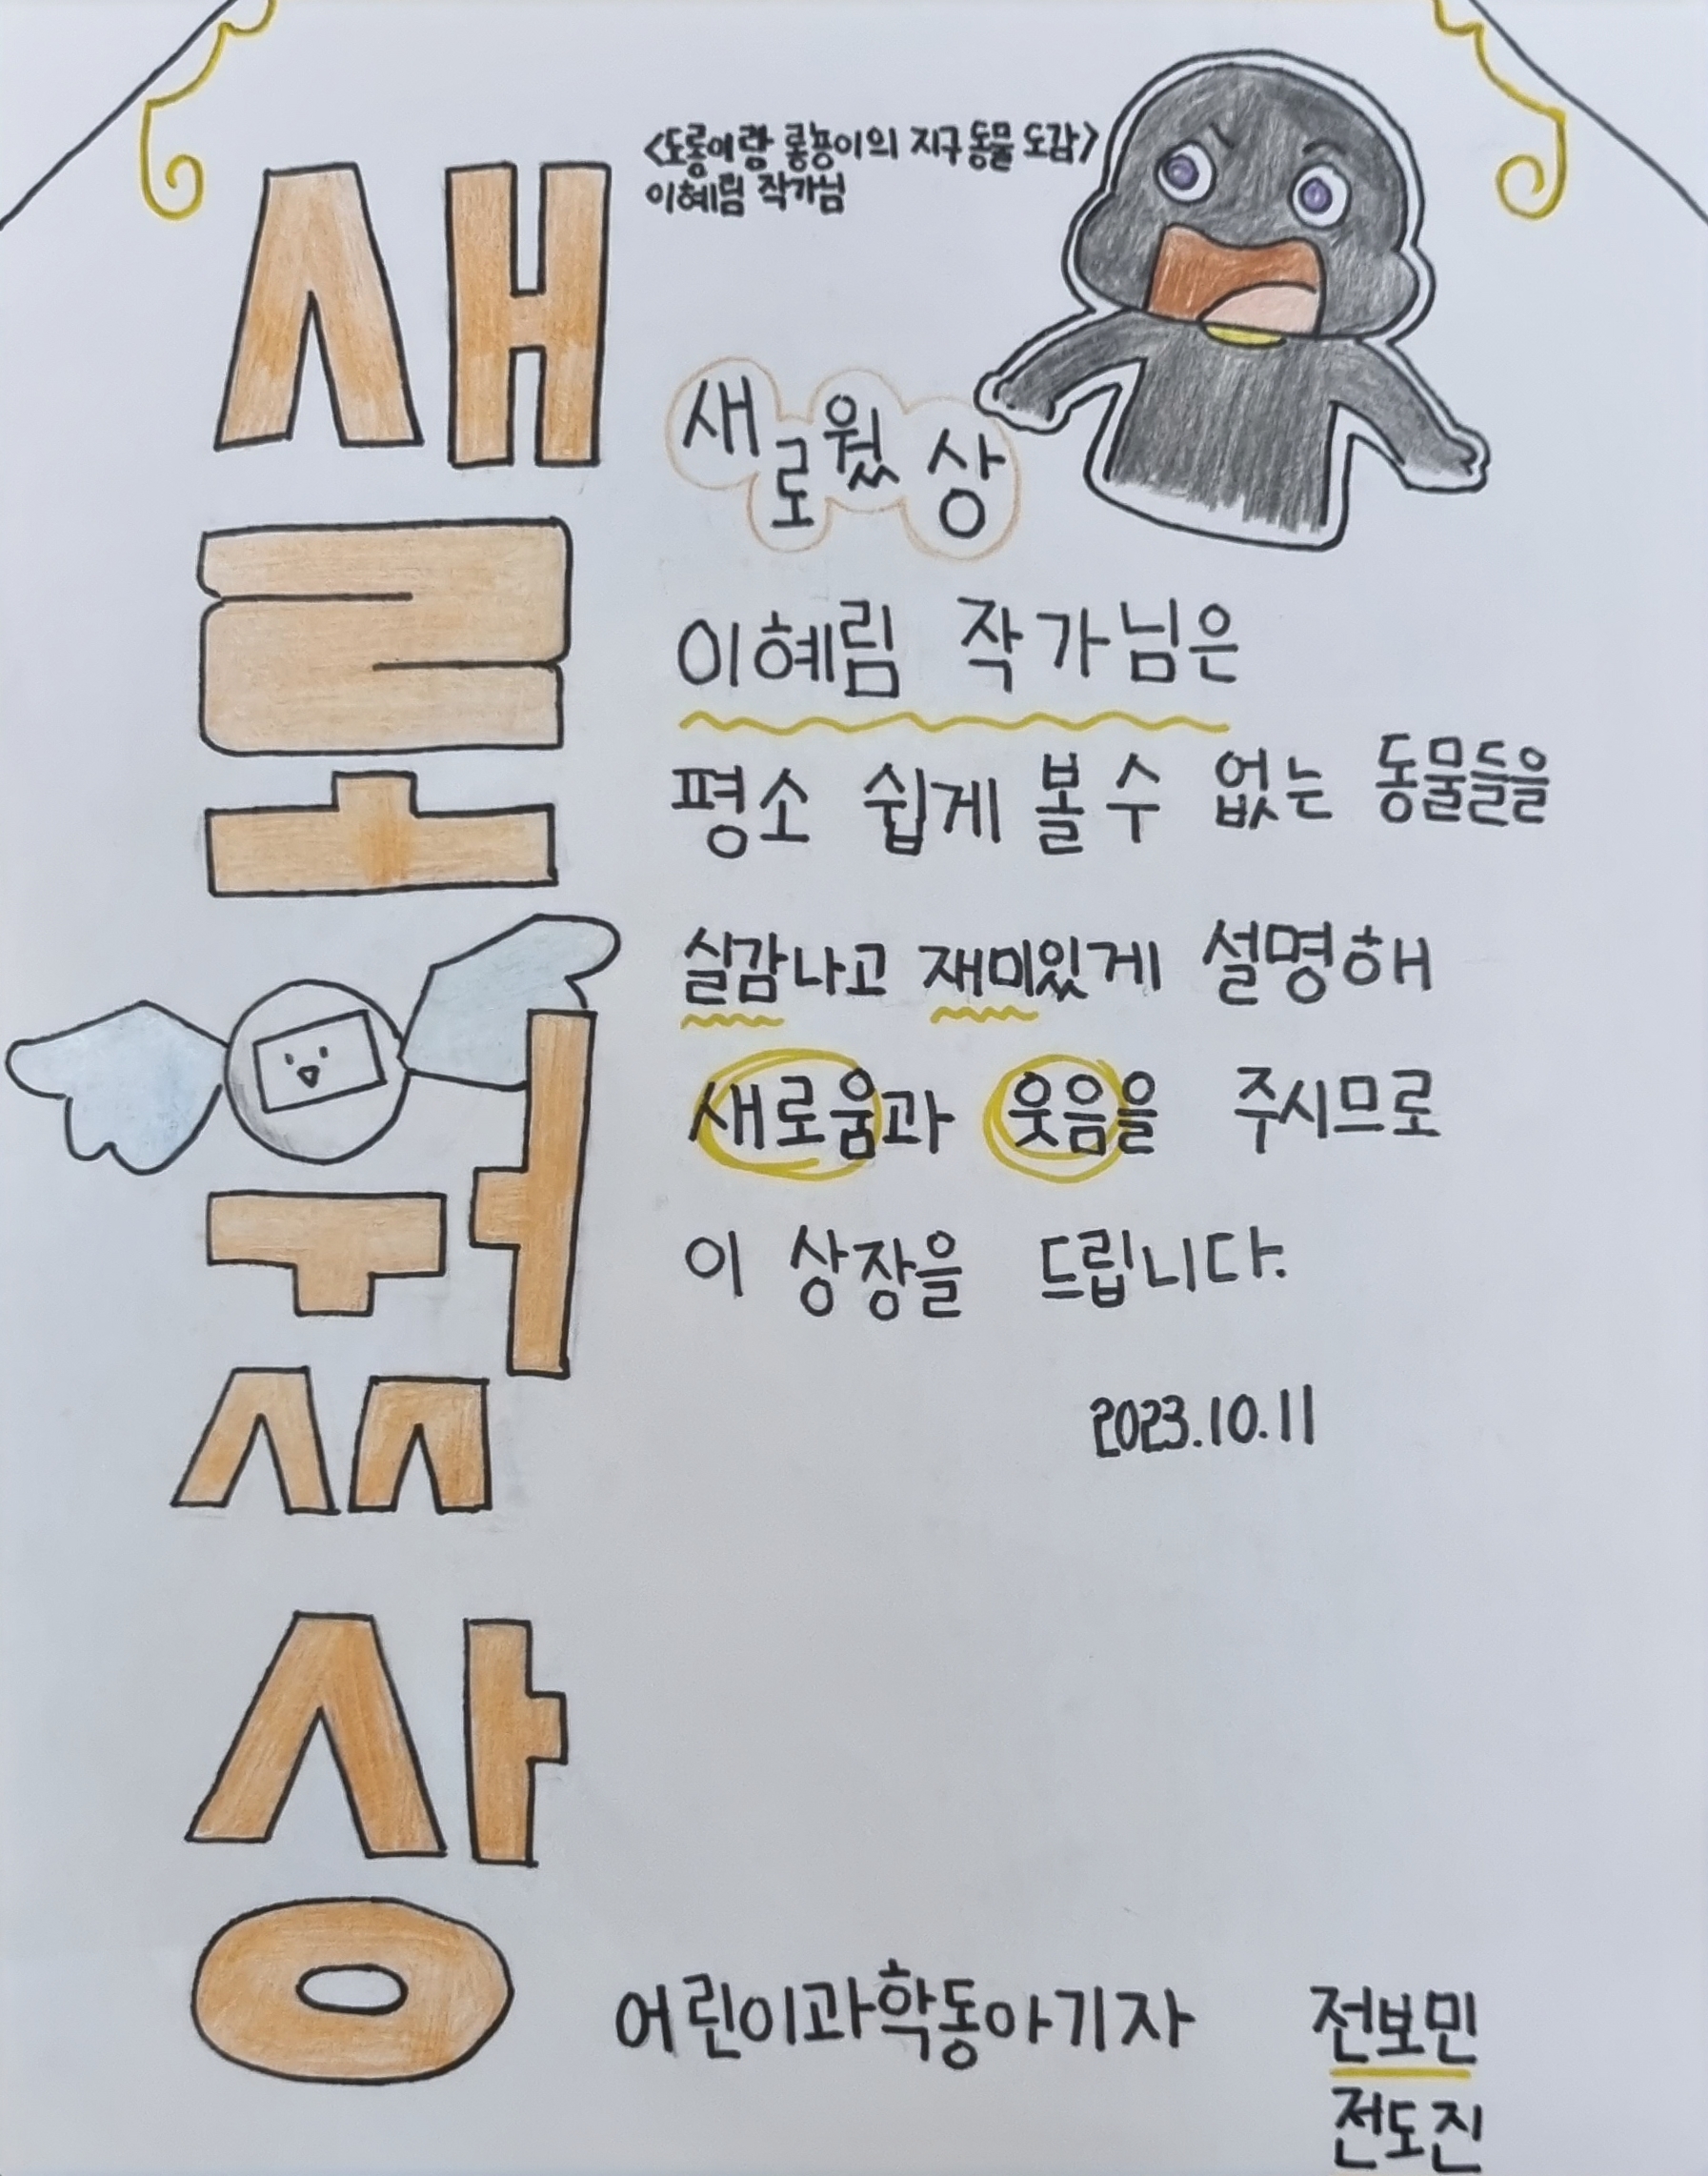 새로웠상
<도롱이랑 롱뇽이의 지구 동물 도감>
이혜림 작가님
새로웠 상
이혜림 작가님은
평소 쉽게 볼 수 없는 동물들을
실감나고 재미있게 설명해
새로움과 웃음을 주시므로
이 상장을 드립니다.
2023.10.11
어린이과학동아기자 전보민
전도진